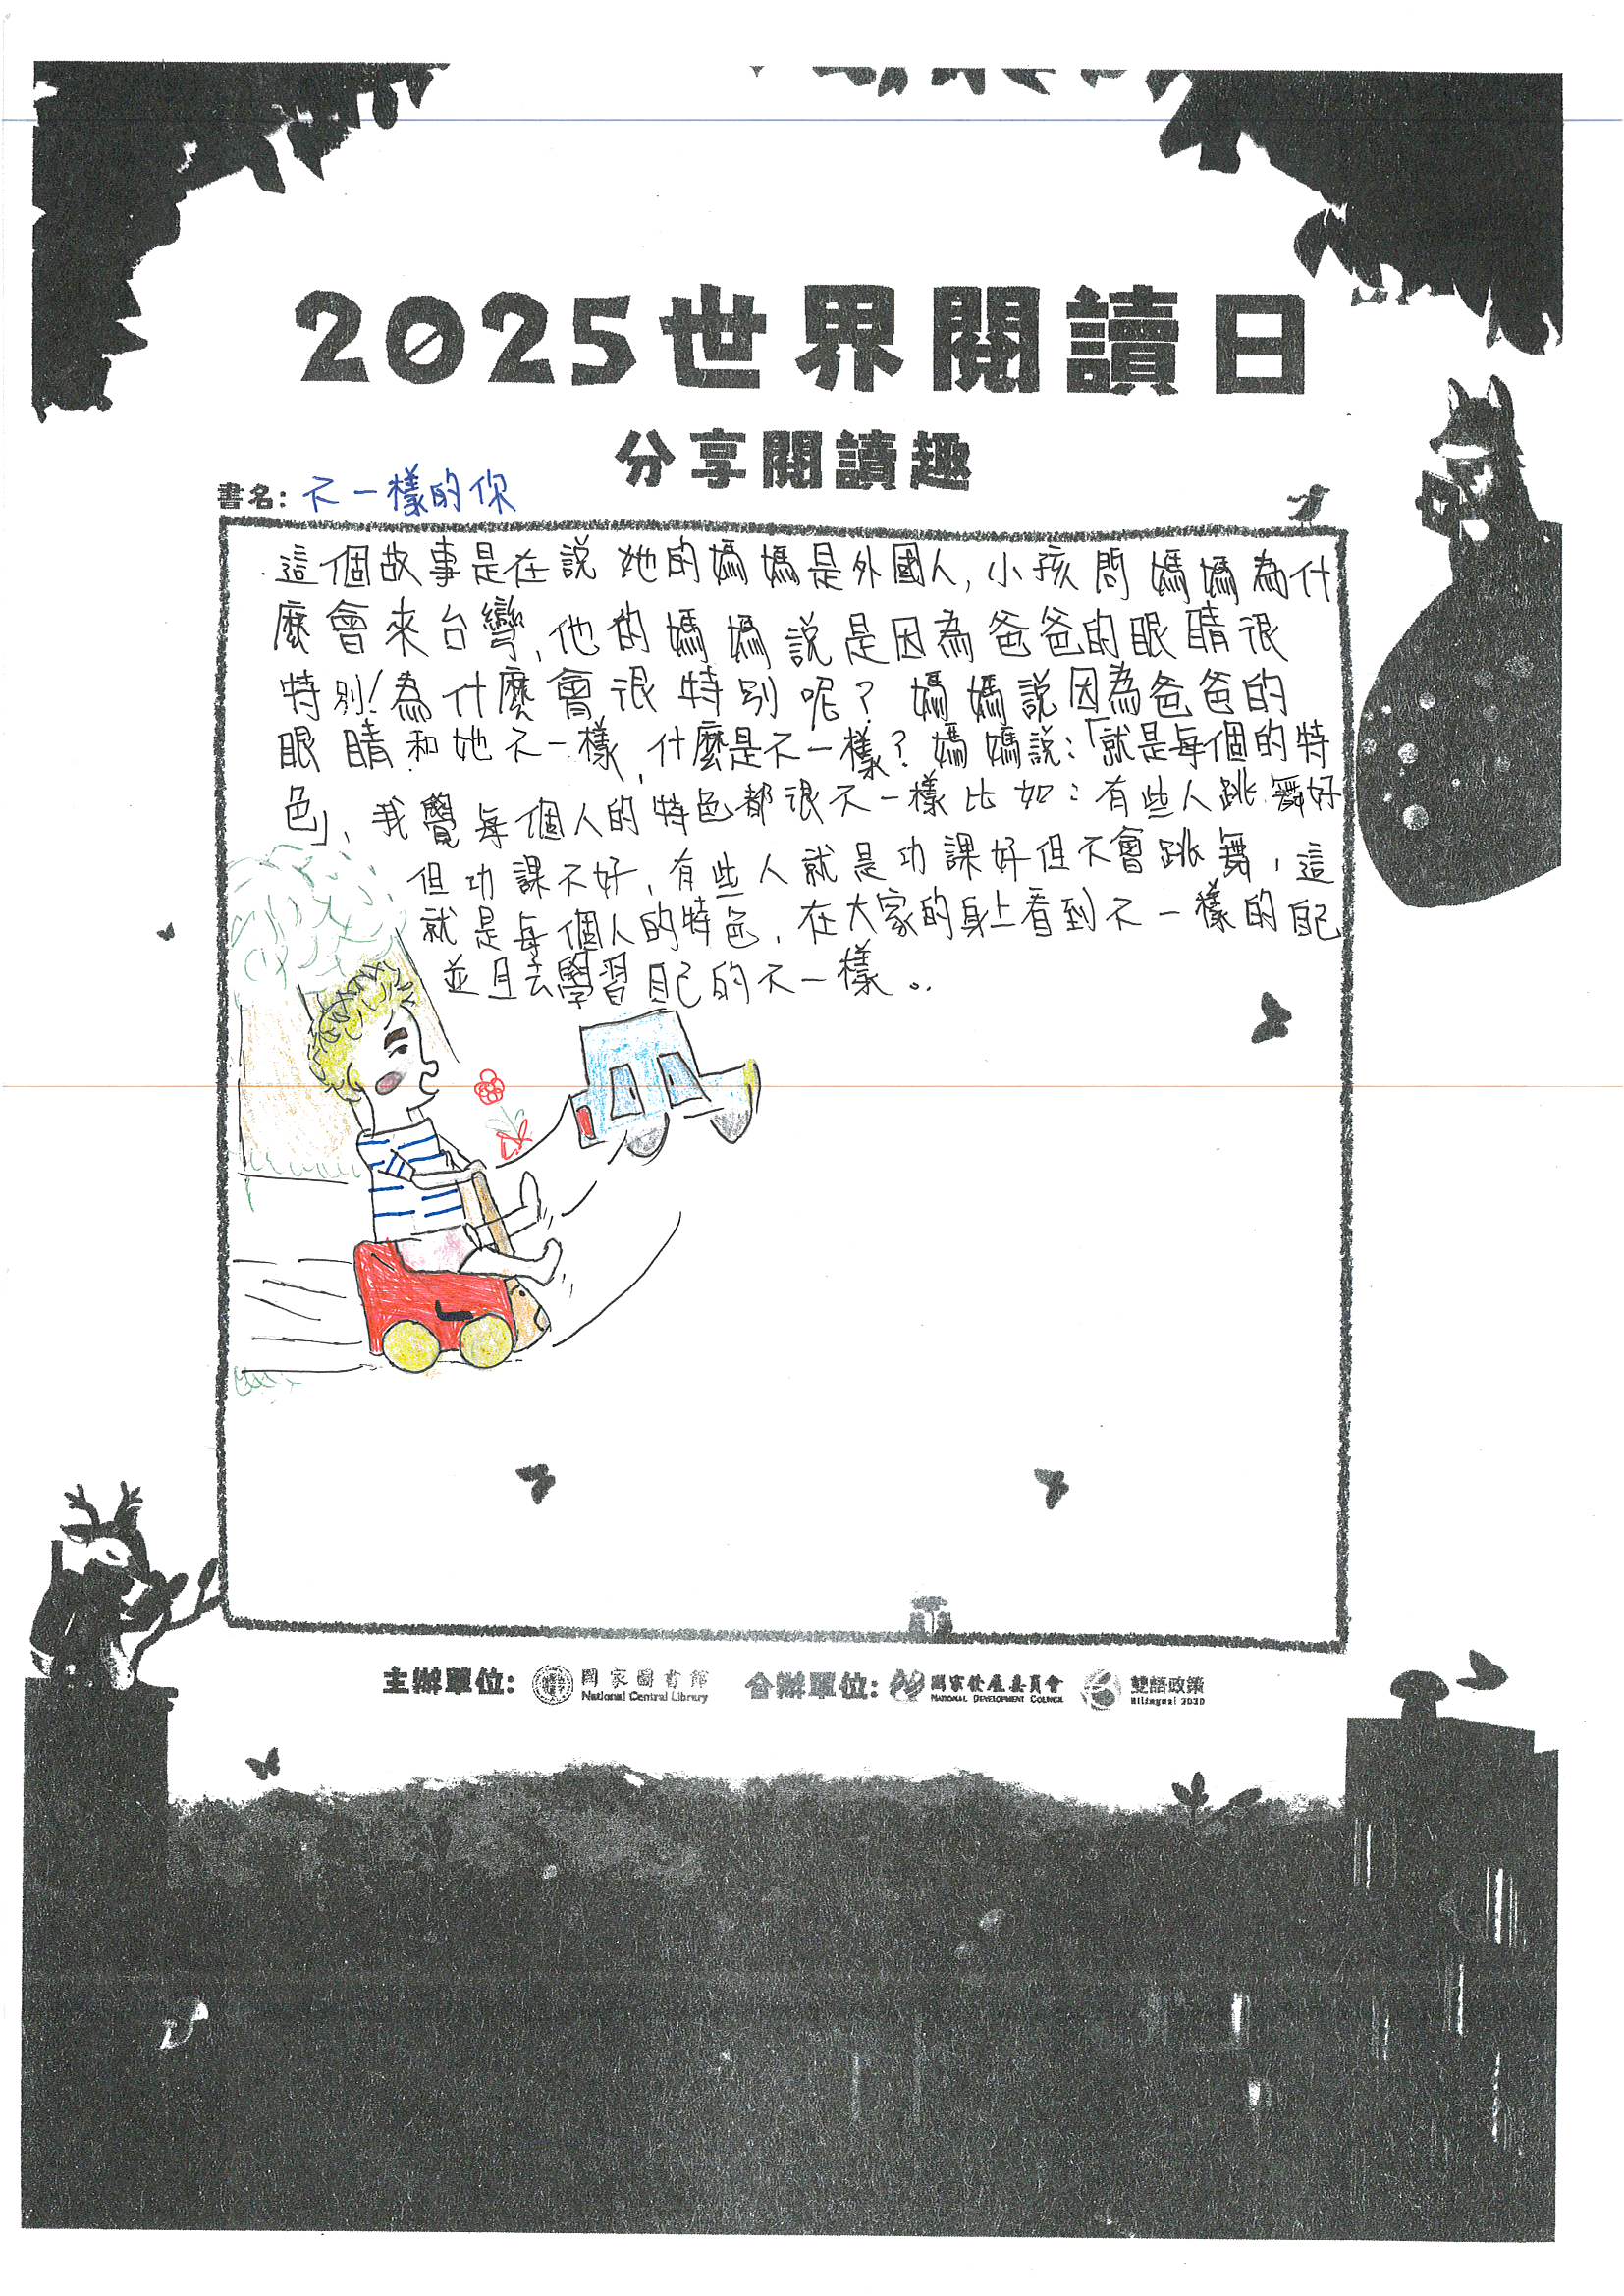 2025世界閱讀日
分享閱讀趣
書名：不一樣的你
這個故事是在說她的媽媽是外國人，小孩問媽媽為什
麼會來台灣，他的媽媽說是因為爸爸的眼睛很
特別！為什麼會很特別呢？媽媽說因為爸爸的
眼睛和她不一樣，什麼是不一樣？媽媽說：「就是每個的特
色」、我覺每個人的特色都很不一樣比如：有些人跳舞好
但功課不好，有些人就是功課好但不會跳舞，這
就是每個人的特色，在大家的身上看到不一樣的自己
並且去學習自己的不一樣。
主辦單位： 國家圖書館 National Central Library 合辦單位： 國家發展委員會 NATIONAL DEVELOPMENT COUNCIL 雙語政策 Bilingual 2030